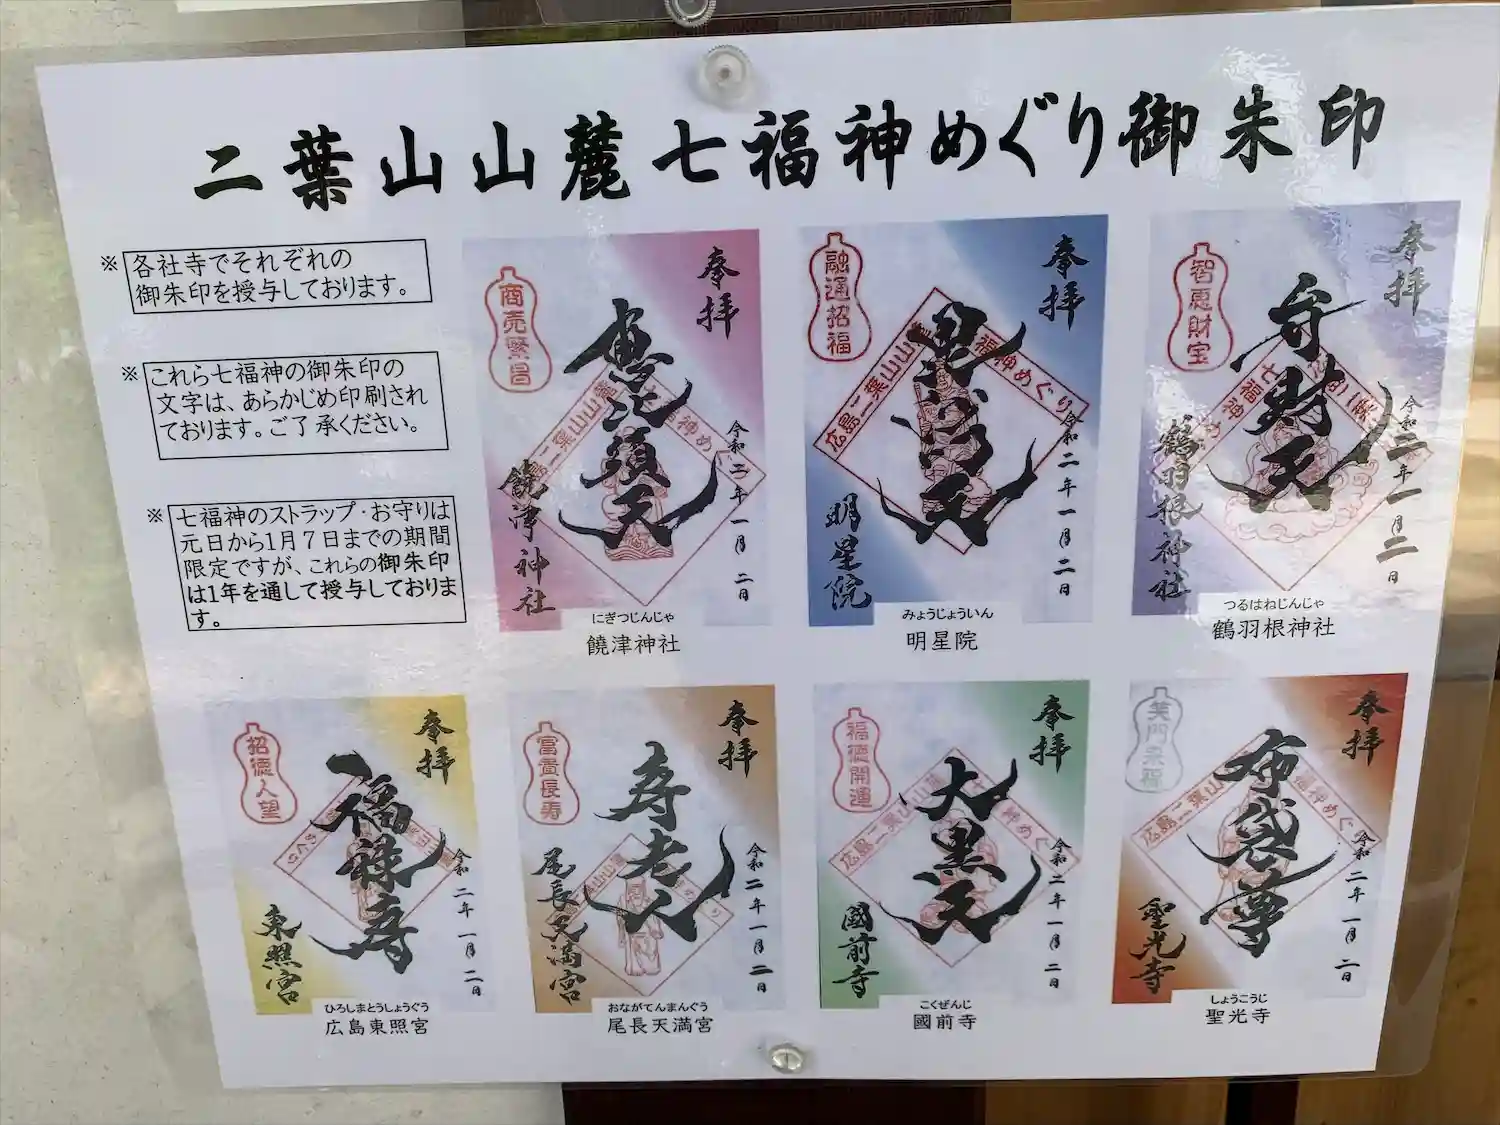 二葉山山麓七福神めぐり御朱印
※ 各社寺でそれぞれの
御朱印を授与しております。
※ これら七福神の御朱印の
文字は、あらかじめ印刷され
ております。ご了承ください。
※ 七福神のストラップ・お守りは
元日から1月7日までの期間
限定ですが、これらの御朱印
は1年を通して授与しておりま
す。
奉拝
商売繁昌
恵比須天
令和二年一月二日
饒津神社
にぎつじんじゃ
饒津神社
奉拝
融通招福
広島二葉山山
福神めぐり
令和二年一月二日
明星院
みょうじょういん
明星院
奉拝
智恵財宝
弁財天
令和二年一月二日
鶴羽根神社
つるはねじんじゃ
鶴羽根神社
奉拝
招徳人望
福禄寿
令和二年一月二日
東照宮
ひろしまとうしょうぐう
広島東照宮
奉拝
富貴長寿
寿老人
令和二年一月二日
尾長天満宮
おながてんまんぐう
尾長天満宮
奉拝
福徳開運
大黒天
令和二年一月二日
國前寺
こくぜんじ
國前寺
奉拝
笑門来福
布袋尊
令和二年一月二日
聖光寺
しょうこうじ
聖光寺